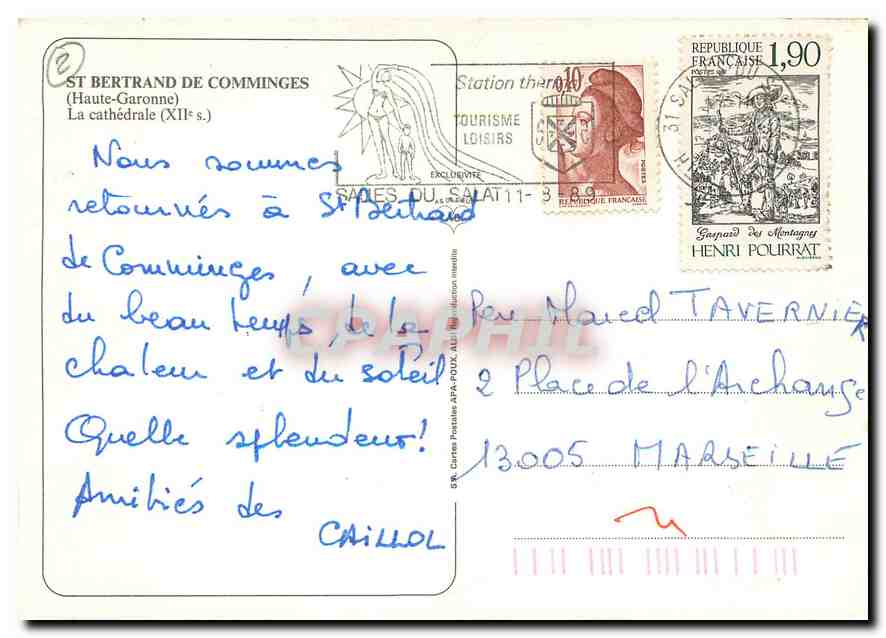 2
ST BERTRAND DE COMMINGES
(Haute-Garonne)
La cathédrale (XIIe s.)
Nous sommes
retournés à St Bertrand
de Comminges, avec
du beau temps, de la
chaleur et du soleil
Quelle splendeur!
Amitiés des
CAILLOL
Station therm
TOURISME
LOISIRS
EXCLUSIVITÉ
SALIES DU SALAT 11-8-89
0,10
POSTES
REPUBLIQUE FRANÇAISE
REPUBLIQUE
FRANÇAISE 1,90
31 SA
Gaspard des Montagnes
HENRI POURRAT
S.A. Cartes Postales APA-POUX, ALBI Reproduction interdite
CPAPHIL
Marcel TAVERNIER
2 Place de l'Archange
13005 MARSEILLE